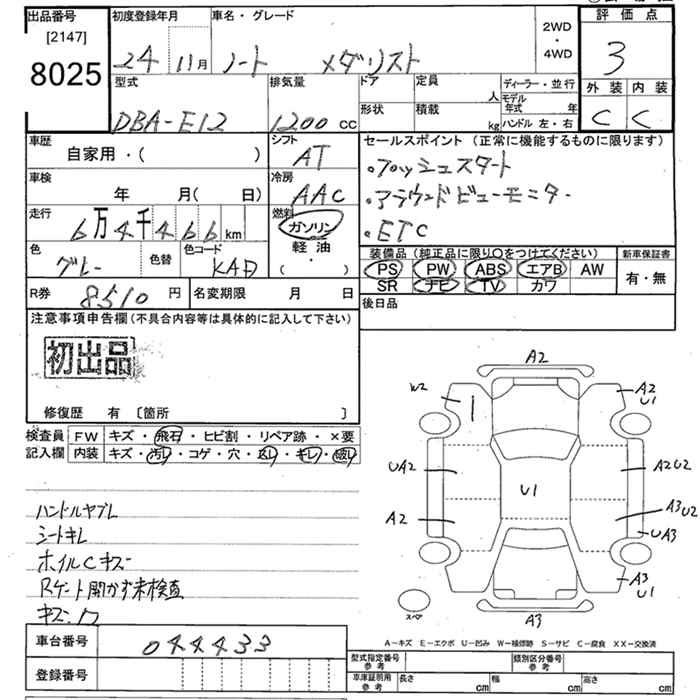 出品番号
[2147]
8025
初度登録年月
24 11月
車名・グレード
ノート メダリスト
2WD
・
4WD
評価点
3
外装 内装
C C
型式
DBA-E12
排気量
1200 CC
ドア
形状
定員
人
積載
kg
ディーラー・並行
モデル年式 年
ハンドル 左・右
車歴
自家用・( )
シフト
AT
セールスポイント (正常に機能するものに限ります)
・プッシュスタート
・アラウンドビューモニター
・ETC
車検
年 月( 日)
冷房
AAC
走行
6万4千466km
燃料
ガソリン
軽油
( ・ )
色
グレー
色替
色コード
KAD
装備品 (純正品に限り○をつけてください)
PS PW ABS エアB AW
SR ナビ TV カワ
新車保証書
有・無
R券 8510 円
名変期限 月 日
後日品
注意事項申告欄 (不具合内容等は具体的に記入して下さい)
初出品
修復歴 有 [箇所 ]
検査員
記入欄
FW キズ・飛石・ヒビ割・リペア跡・×要
内装 キズ・汚れ・コゲ・穴・返し・キレ・破レ
ハンドルヤブレ
シートキレ
ホイルCキズ
Rゲート開かず未検査
キズ.ワ
A2
W2
A2
U1
UA2
A2U2
U1
A2
A3U2
UA3
A3
U1
スペア
A3
A−キズ E−エクボ U−凹み W−補修跡 S−サビ C−腐食 XX−交換済
車台番号
044433
登録番号
型式指定番号
参考
類別区分番号
参考
車庫証明用
参考
長さ cm
幅 cm
高さ cm